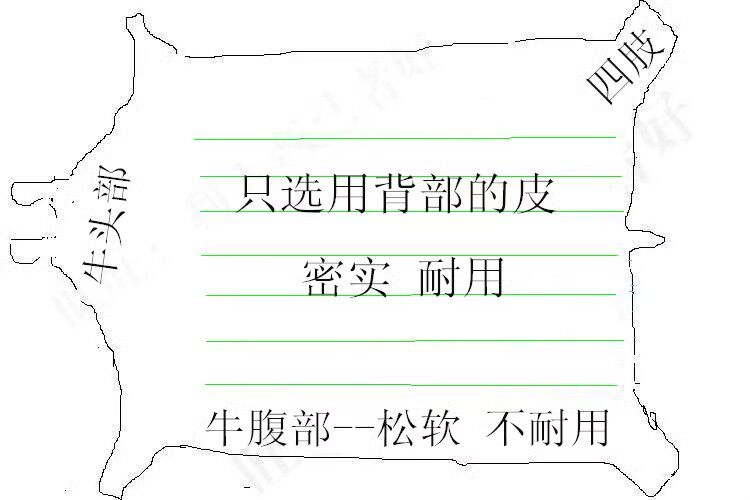 四肢
牛头部
只选用背部的皮
密实 耐用
牛腹部--松软 不耐用